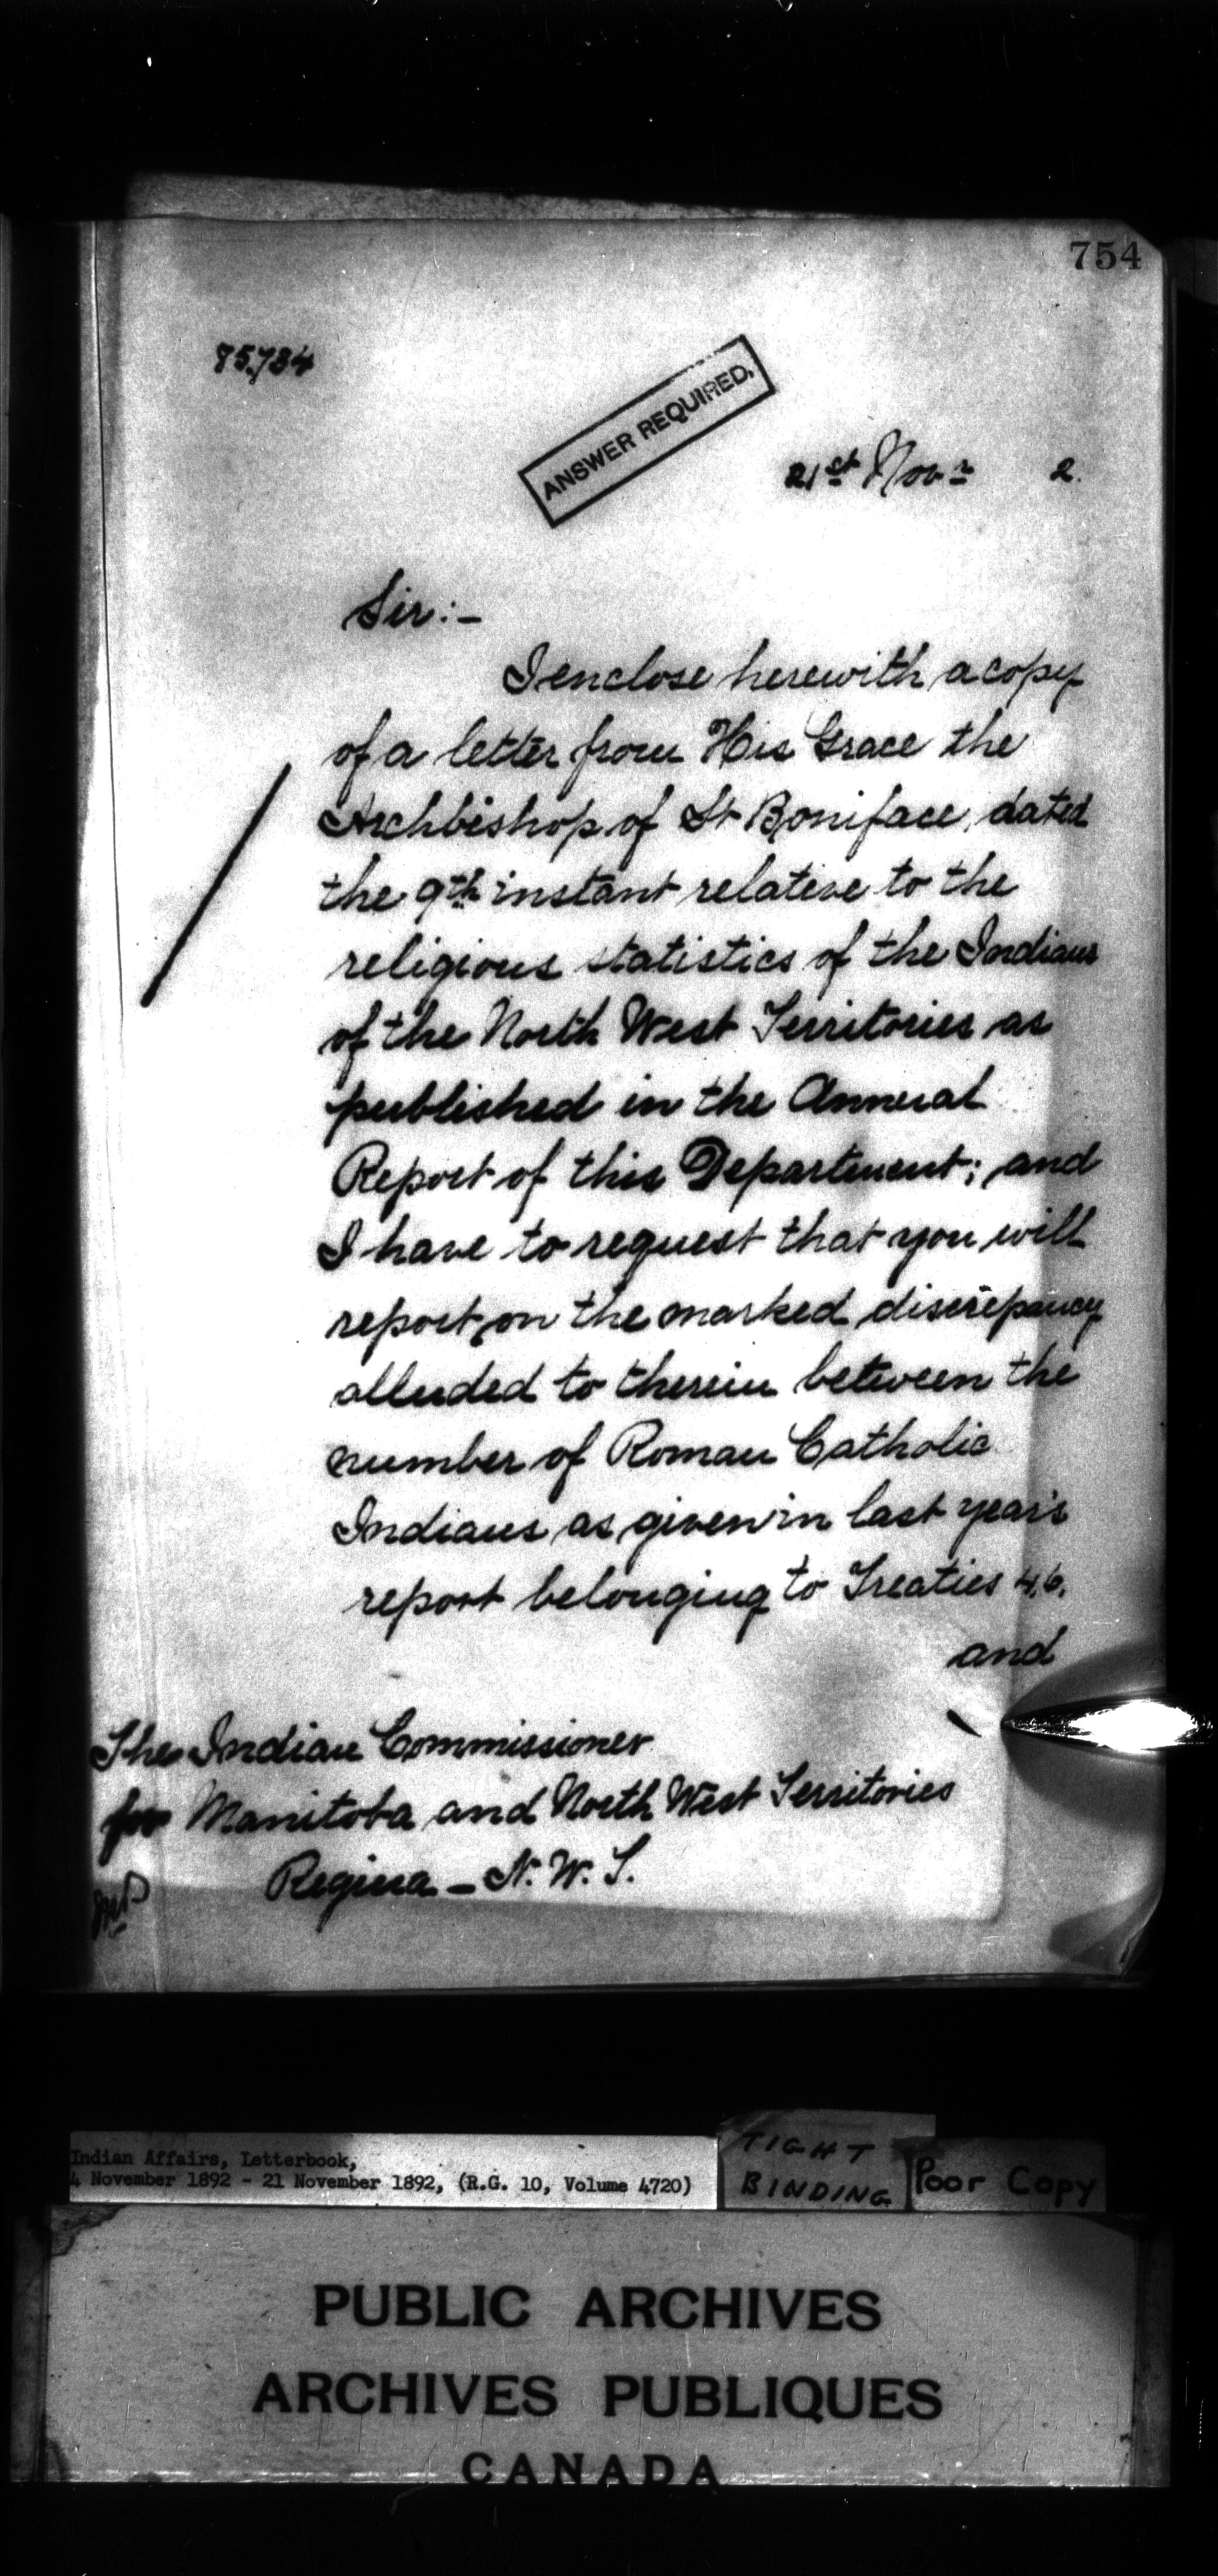 754
75,734
ANSWER REQUIRED.
21st Novr 2.
Sir:-
I enclose herewith a copy
of a letter from His Grace the
Archbishop of St Boniface, dated
the 9th instant relative to the
religious statistics of the Indians
of the North West Territories as
published in the Annual
Report of this Department; and
I have to request that you will
report on the marked discrepancy
alluded to therein between the
number of Roman Catholic
Indians as given in last year's
report belonging to Treaties 4, 6,
and
The Indian Commissioner
for Manitoba and North West Territories
Regina - N. W. T.
Indian Affairs, Letterbook,
4 November 1892 - 21 November 1892, (R.G. 10, Volume 4720)
TIGHT
BINDING
Poor Copy
PUBLIC ARCHIVES
ARCHIVES PUBLIQUES
CANADA